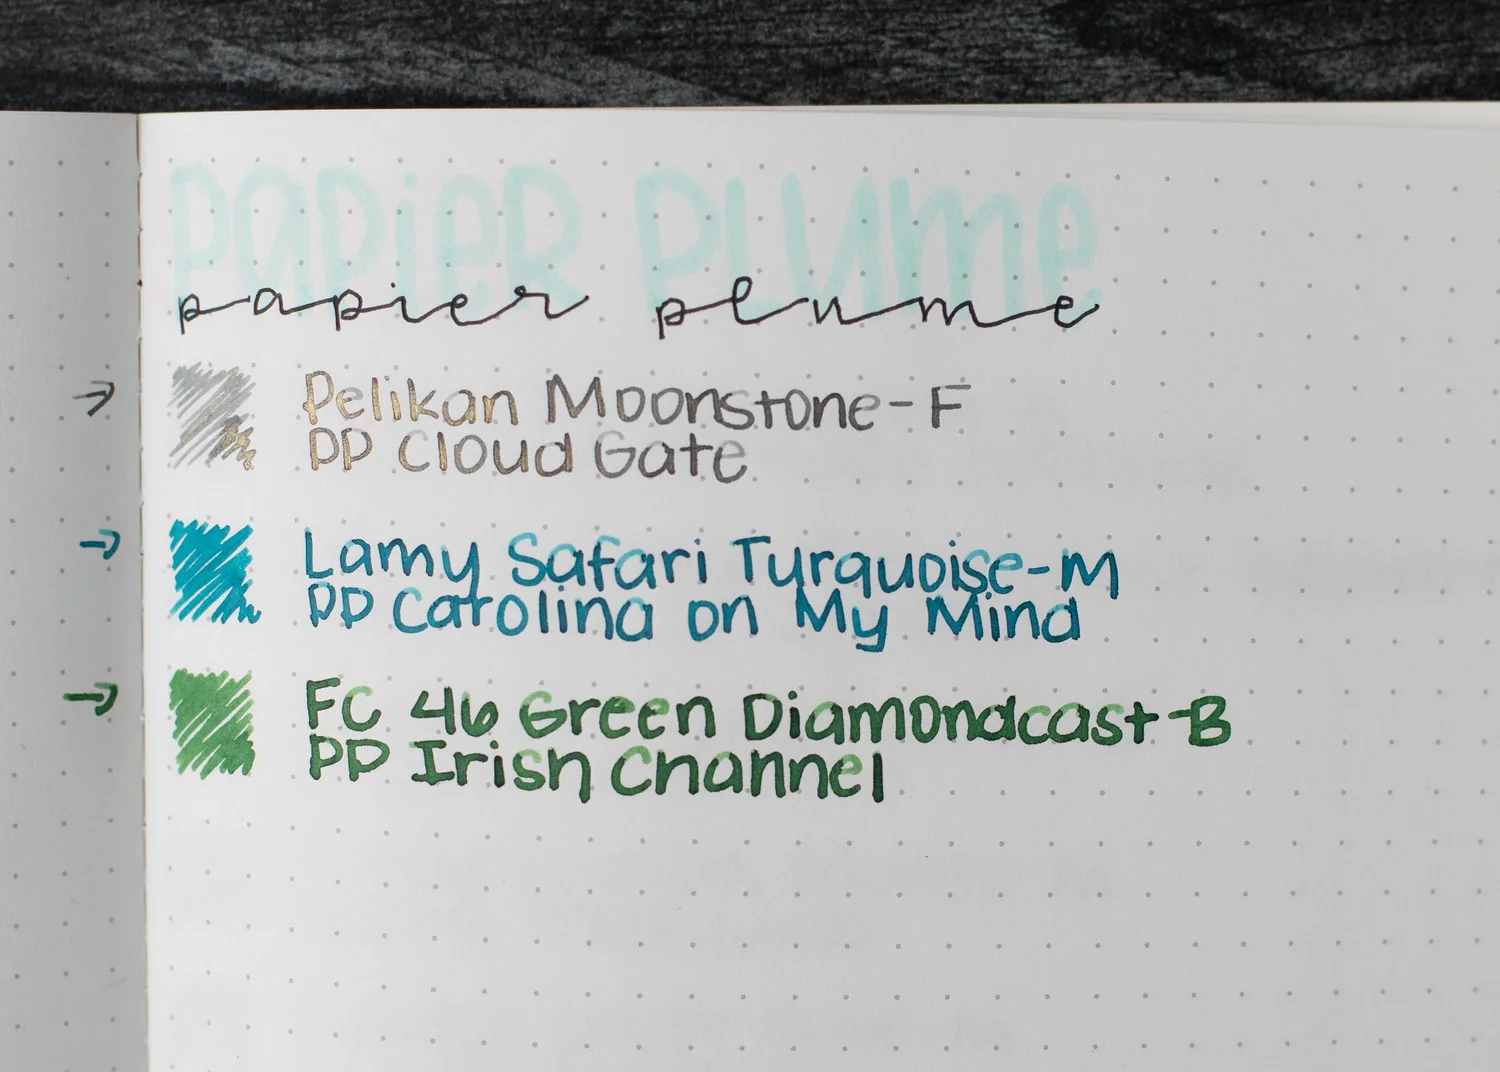 papier plume
papier plume
→ Pelikan Moonstone-F
PP Cloud Gate
→ Lamy Safari Turquoise-M
PP Carolina on My Mind
→ FC 46 Green Diamondcast-B
PP Irish Channel